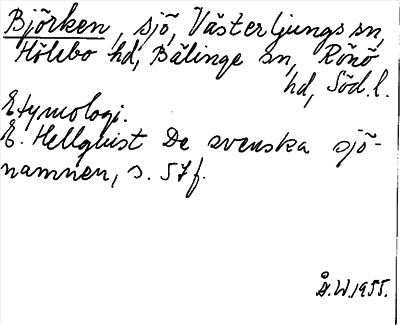 Björken, sjö, Västerljungs sn,
Hölebo hd, Bälinge sn, Rönö
hd, Söd. l.
Etymologi.
E. Hellquist De svenska sjö-
namnen, s. 57f.
Å.W. 1955.